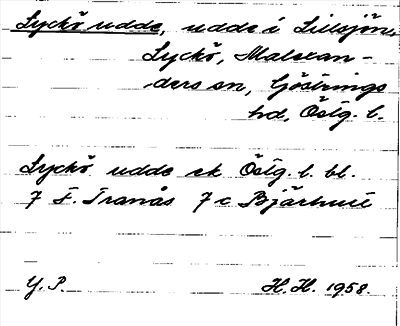 Lyckö udde, udde i Lillsjön,
Lyckö, Malexan-
ders sn, Göstrings
hd, Östg. l.
Lyckö udde ek Östg. l. bl.
7 F. Tranås 7 c Bjärhult
Y. P. H. H. 1958.